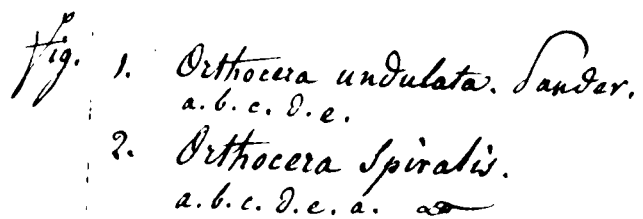 fig. 1. Orthocera undulata. Sander.
a. b. c. d. e.
2. Orthocera Spiralis.
a. b. c. d. e. a.